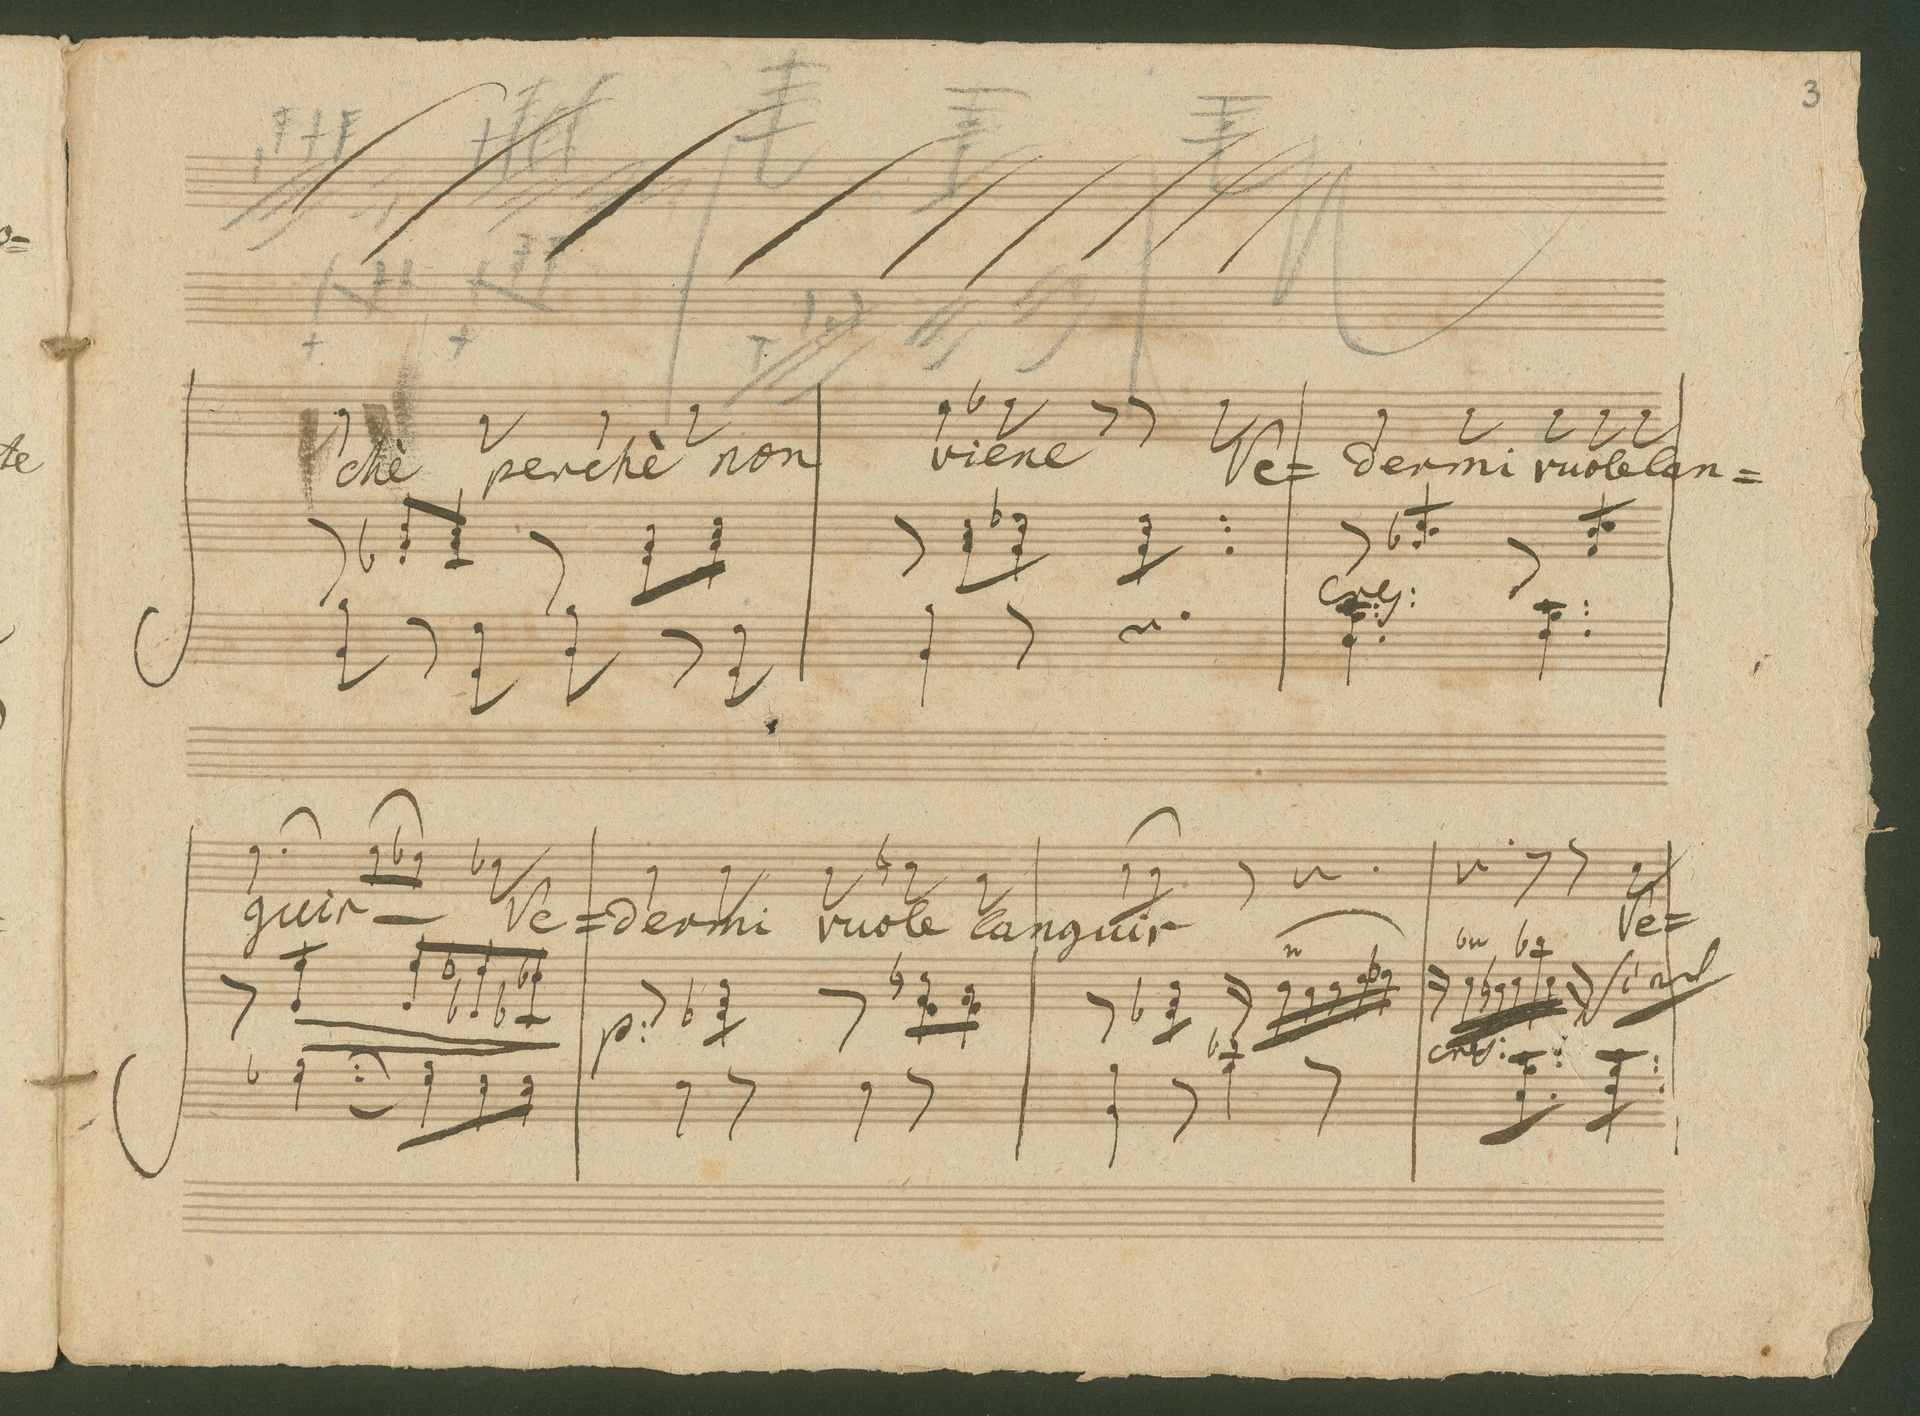 3
o=
te
chè perchè non viene Ve= dermi vuole lan=
cres:
guir Ve= dermi vuole languir Ve=
p:
cres: